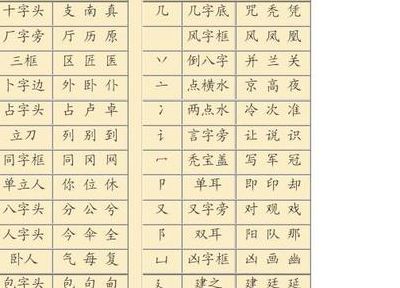 十字头 支 南 真 几 几字底 咒 秃 凭
厂字旁 厅 历 原 风字框 风 凤 凰
三框 区 匠 医 丷 倒八字 并 兰 关
卜字边 外 卧 仆 亠 点横头 京 高 夜
占字头 占 卢 卓 冫 两点水 冷 次 准
立刀 列 别 到 讠 言字旁 让 说 识
同字框 同 冈 网 冖 秃宝盖 写 军 冠
单立人 你 位 休 卩 单耳 即 印 却
八字头 分 公 兮 又 又字旁 对 观 戏
人字头 今 伞 全 阝 双耳 阳 队 那
卧人 气 每 复 凵 凶字框 凶 画 幽
包字头 包 句 甸 廴 建之 建 廷 延